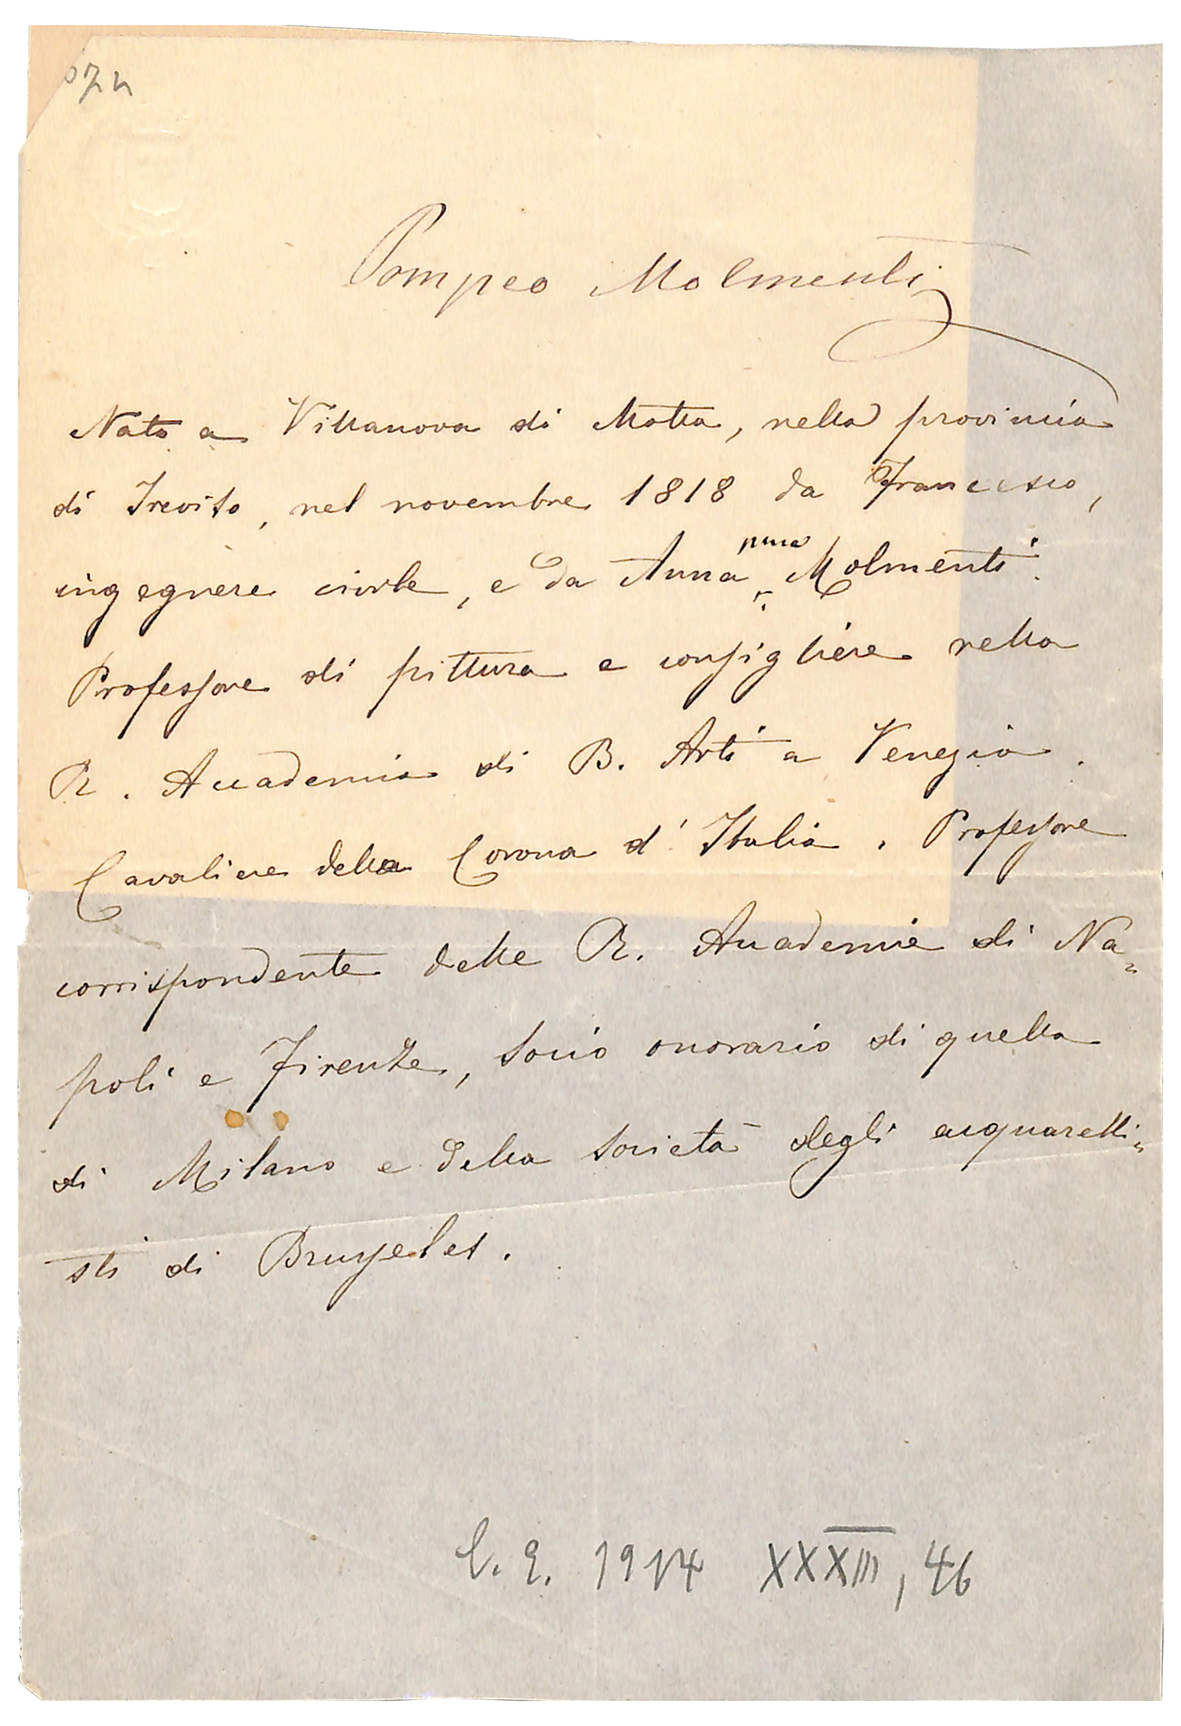 Pompeo Molmenti
Nato a Villanova di Motta, nella provincia
di Treviso, nel novembre 1818 da Francesco,
ingegnere civile, e da Anna pura Molmenti.
Professore di pittura e consigliere nella
R. Accademia di B. Arti a Venezia.
Cavaliere della Corona d'Italia. Professore
corrispondente delle R. Accademie di Na=
poli e Firenze, socio onorario di quella
di Milano e della società degli acquarelli=
sti di Bruxelles.
C. E. 1914 XXXIII, 46